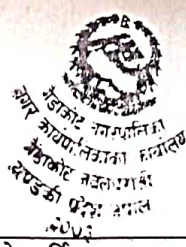 गैंडाकोट नगरपालिका
नगर कार्यपालिकाको कार्यालय
गैंडाकोट नवलपरासी
गण्डकी प्रदेश नेपाल
२०७३